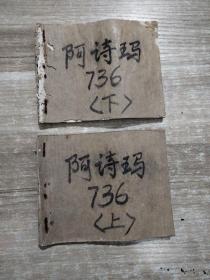 阿诗玛
736
〈下〉
阿诗玛
736
〈上〉